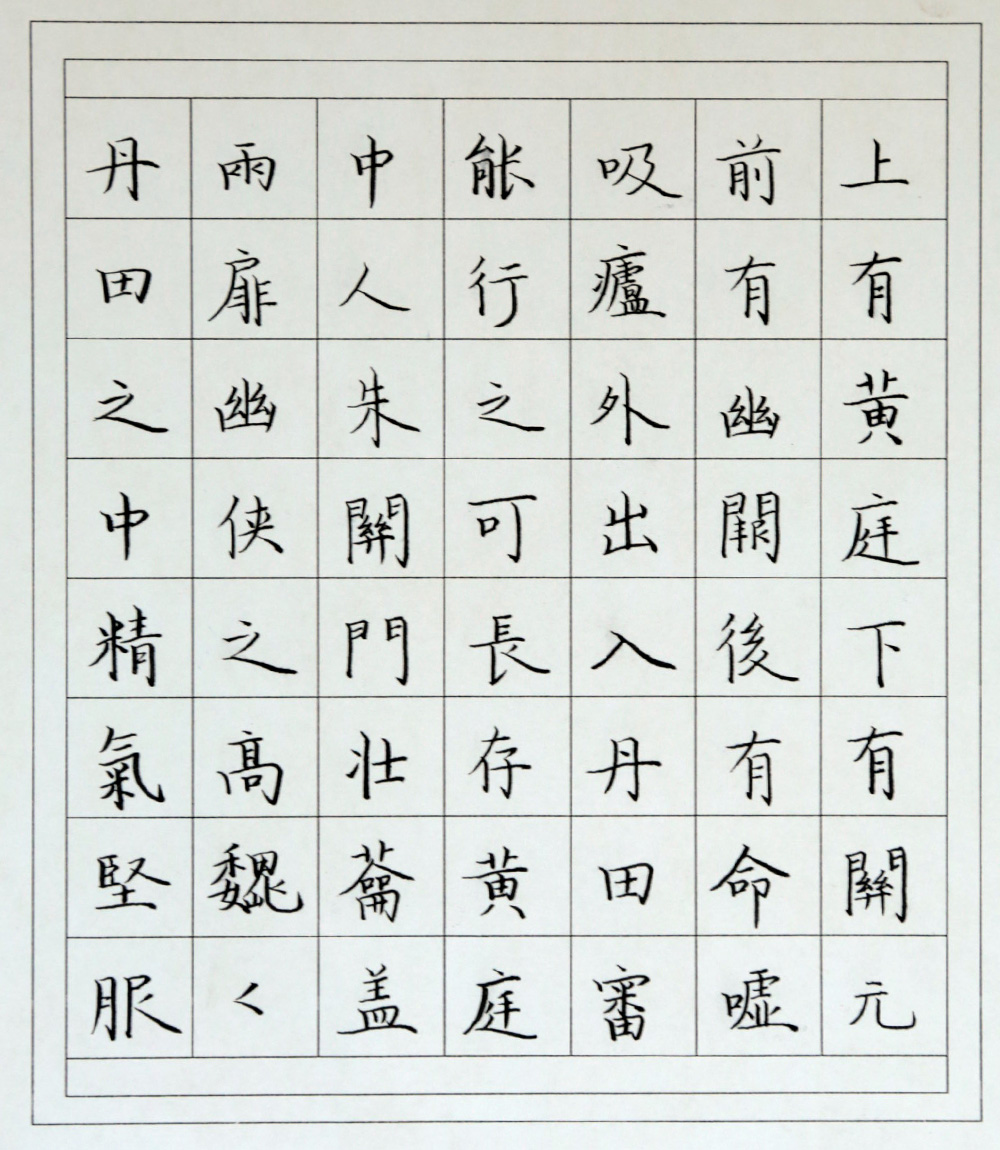 上有黄庭下有關元
前有幽闕後有命噓
吸廬外出入丹田審
能行之可長存黄庭
中人朱關門壯蘥盖
兩扉幽俠之高魏く
丹田之中精氣堅服